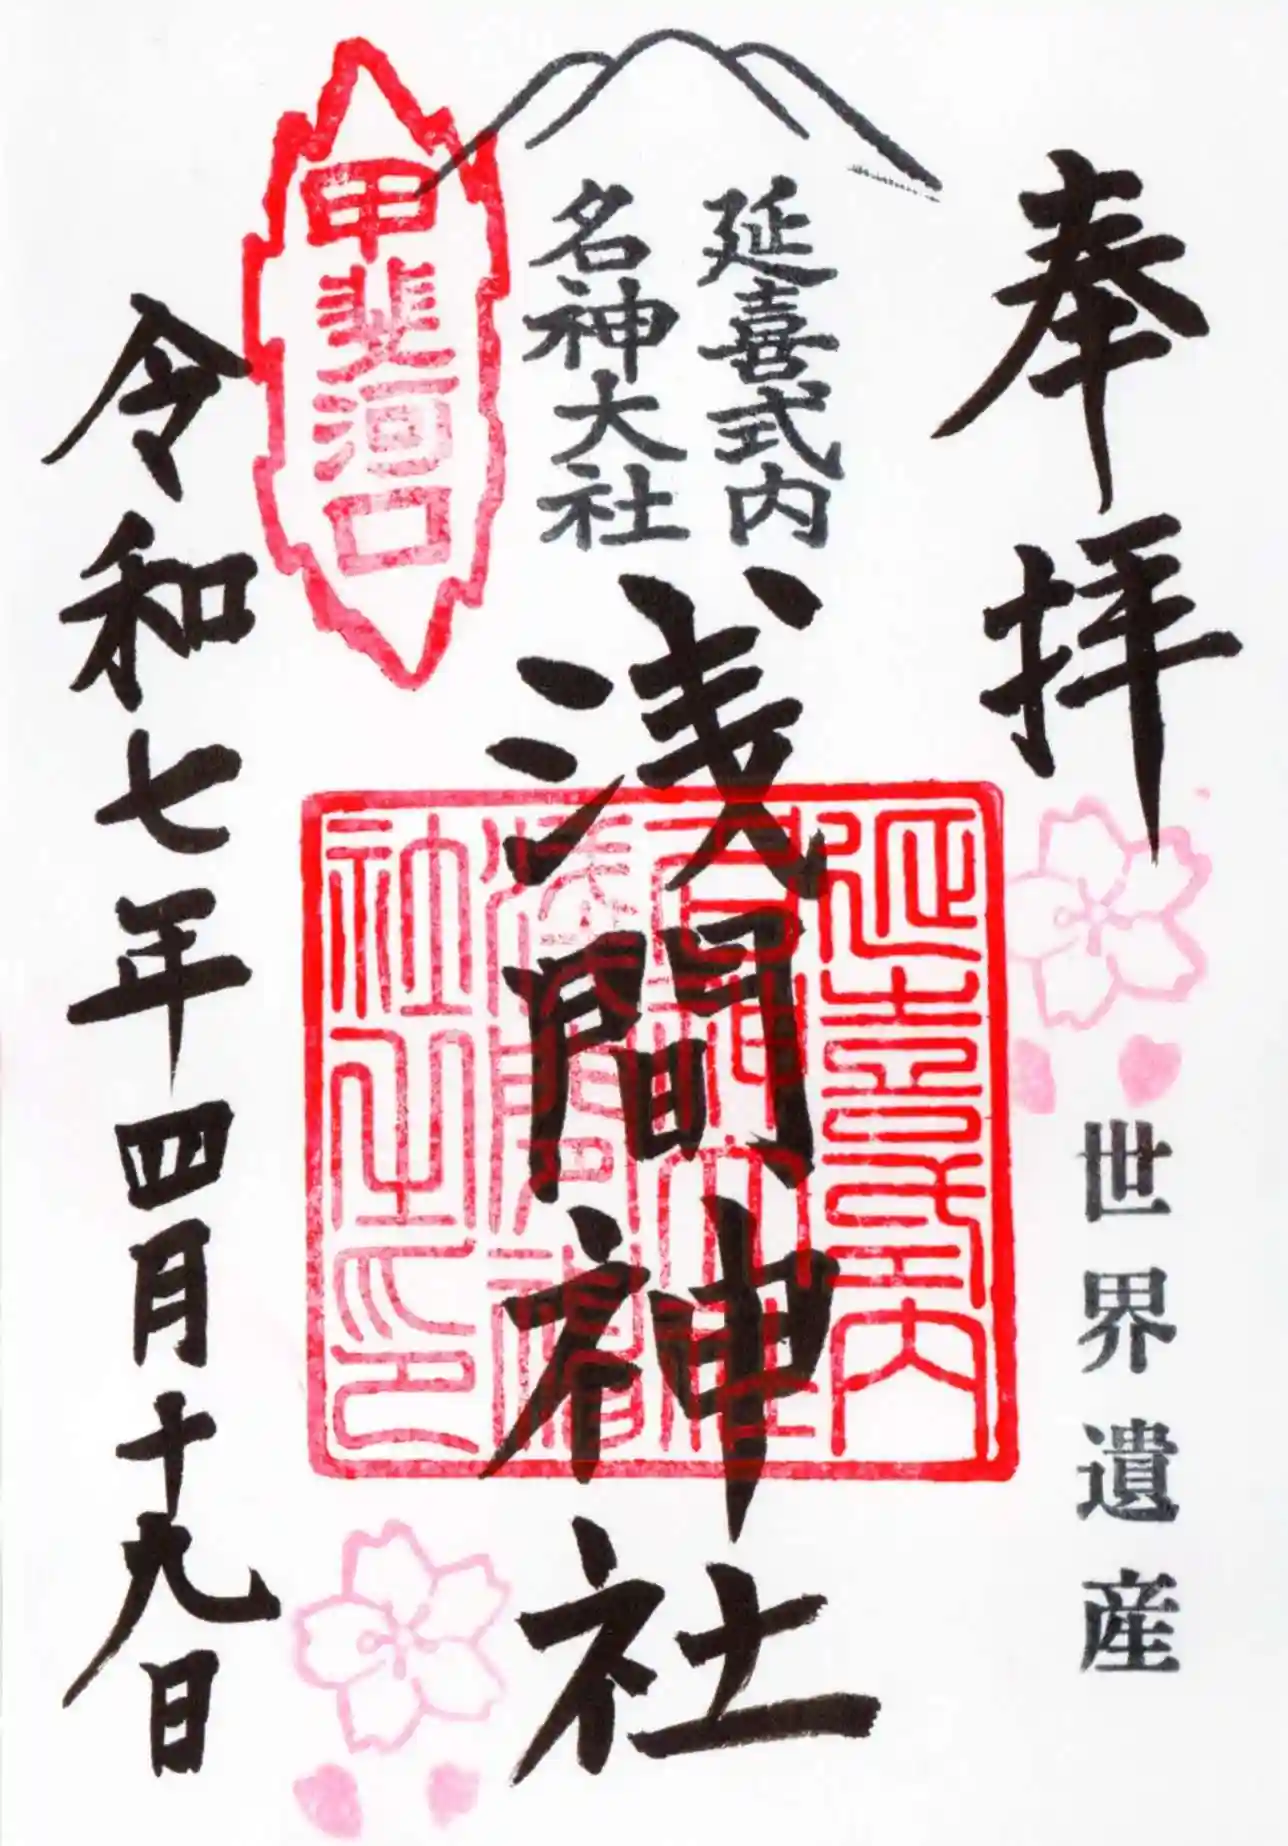 奉拝
世界遺産
延喜式内
名神大社
浅間神社
延喜式内
名神大社
浅間神
社之印
甲斐河口
令和七年四月十九日